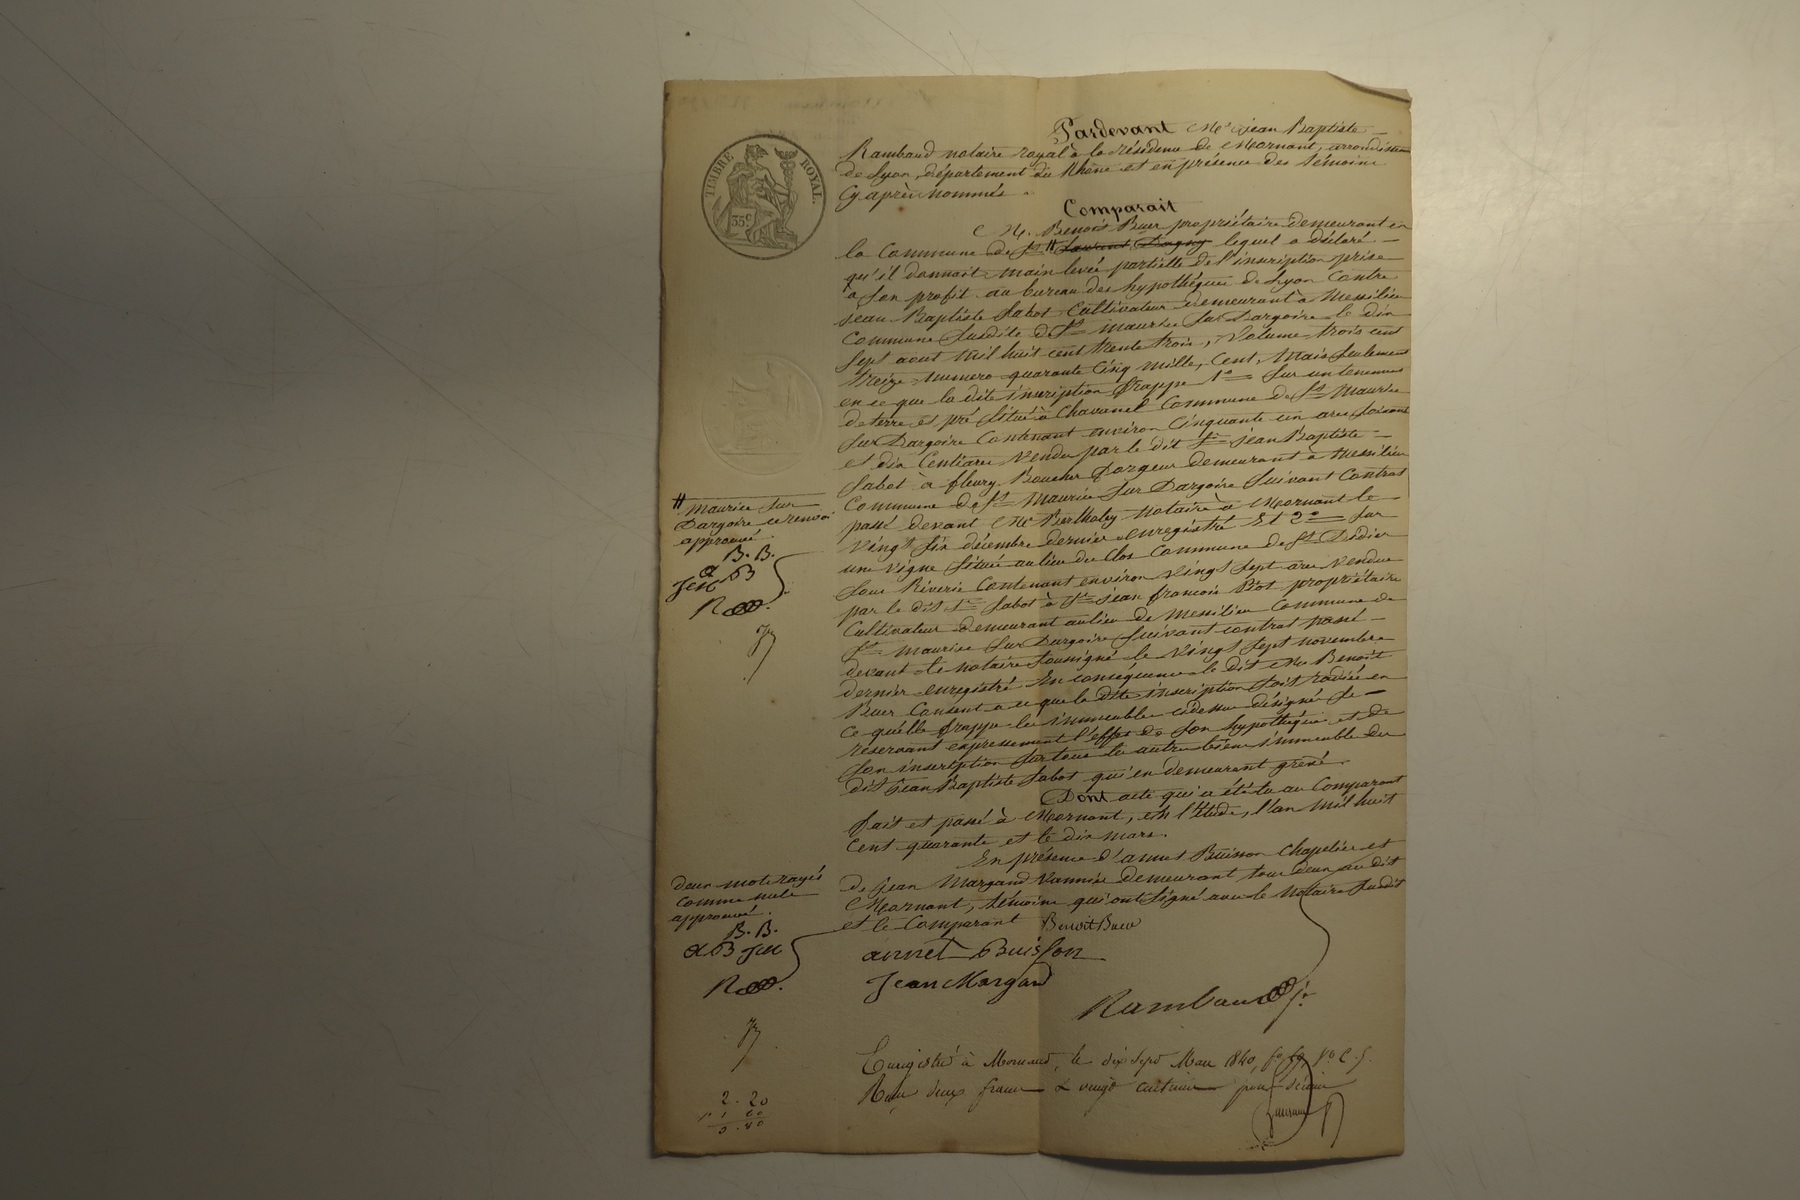 TIMBRE ROYAL.
35c
Pardevant Me Jean Baptiste
Rambaud notaire royal à la résidence de Mornant, arrondissement
de Lyon, département du Rhône et en présence des témoins
Cy après nommés
Comparait
M. Benoit Buer propriétaire demeurant en
la Commune de St # Laurent Dagny lequel a déclaré
qu'il donnait main levée partielle de l'inscription prise
à son profit au bureau des hypothéques de Lyon Contre
Jean Baptiste Sabot Cultivateur demeurant à Messilieu
Commune susdite de St Maurice sur Dargoire le dix
sept aout mil huit cent trente trois, Volume trois cent
treize numero quarante Cinq mille, Cent, Mais seulement
en ce que la dite inscription frappe 1° sur un tenement
de terre et pré situé à Chavanel Commune de St Maurice
sur Dargoire Contenant environ Cinquante un ares soixante
et dix Centiares Vendu par le dit Sr Jean Baptiste
Sabot à fleury Boucher Forgeur demeurant à Messilieu
Commune de St Maurice sur Dargoire suivant Contrat
passé devant Me Bertholey notaire à Mornant le
vingt six décembre dernier enregistré Et 2° sur
une vigne située au lieu du Clos Commune de St Didier
sous Riverie Contenant environ vingt sept ares vendue
par le dit Sr Sabot à Sr Jean françois Piot propriétaire
Cultivateur demeurant au lieu de Messilieu Commune de
St Maurice sur Dargoire suivant contrat passé
devant le notaire soussigné le vingt sept novembre
dernier enregistré En consequence le dit Mr Benoit
Buer Consent a ce que la dite inscription soit radiée en
ce qu'elle frappe les immeubles cidessus désignés se
réservant expressement l'effet de son hypothéque et de
son inscription sur tous les autres biens immeubles du
dit Jean Baptiste Sabot qui en demeurent grevés.
Dont acte qui a été lu au Comparant
fait et passé à Mornant, en l'étude, l'an mil huit
cent quarante et le dix mars.
En présence d'annet Buisson Chapelier et
de Jean Margand Vannier demeurant tous deux au dit
Mornant, témoins qui ont signé avec le Notaire susdit
et le Comparant Benoit Buer
annet Buisson
Jean Margand
Rambaud
# Maurice sur
Dargoire ce renvoi
approuvé
B. B.
a B
JM
R
deux mots rayés
comme nuls
approuvé.
B. B.
a B JM
R
Enregistré à Mornant, le dix sept Mars 1840, fo 59, Vo C. 5.
Reçu deux francs & vingt centimes pour décime
2.20